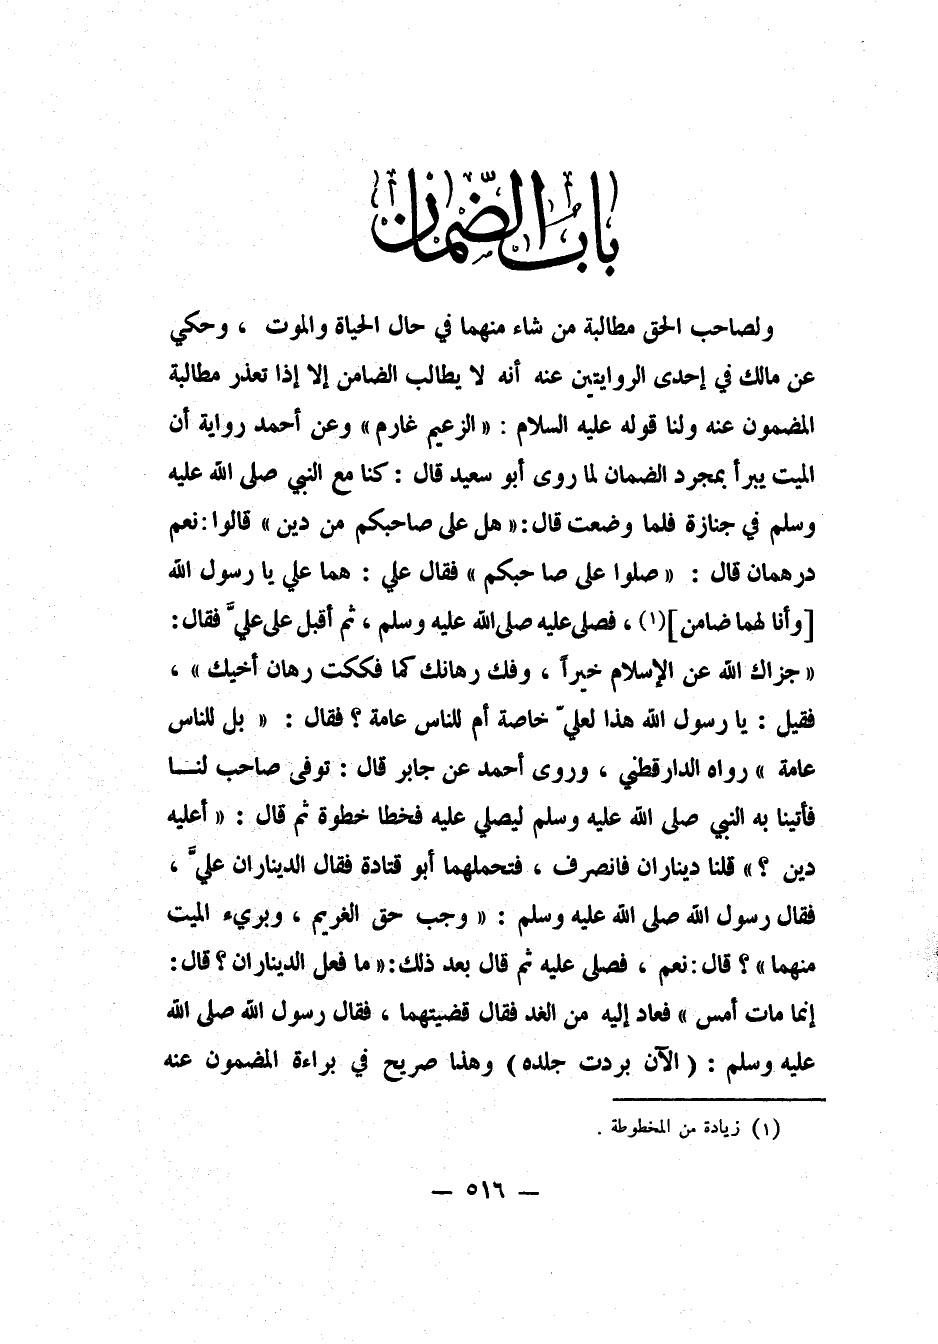 باب الضمان
ولصاحب الحق مطالبة من شاء منهما في حال الحياة والموت ، وحكي
عن مالك في إحدى الروايتين عنه أنه لا يطالب الضامن إلا إذا تعذر مطالبة
المضمون عنه ولنا قوله عليه السلام : « الزعيم غارم » وعن أحمد رواية أن
الميت يبرأ بمجرد الضمان لما روى أبو سعيد قال : كنا مع النبي صلى الله عليه
وسلم في جنازة فلما وضعت قال : « هل على صاحبكم من دين » قالوا : نعم
درهمان قال : « صلوا على صاحبكم » فقال علي : هما علي يا رسول الله
[ وأنا لهما ضامن ](١) ، فصلى عليه صلى الله عليه وسلم ، ثم أقبل على عليَّ فقال :
« جزاك الله عن الإسلام خيراً ، وفك رهانك كما فككت رهان أخيك » ،
فقيل : يا رسول الله هذا لعليّ خاصة أم للناس عامة ؟ فقال : « بل للناس
عامة » رواه الدارقطني ، وروى أحمد عن جابر قال : توفى صاحب لنــا
فأتينا به النبي صلى الله عليه وسلم ليصلي عليه فخطا خطوة ثم قال : « أعليه
دين ؟ » قلنا ديناران فانصرف ، فتحملهما أبو قتادة فقال الديناران عليَّ ،
فقال رسول الله صلى الله عليه وسلم : « وجب حق الغريم ، وبريء الميت
منهما » ؟ قال : نعم ، فصلى عليه ثم قال بعد ذلك : « ما فعل الديناران ؟ قال :
إنما مات أمس » فعاد إليه من الغد فقال قضيتهما ، فقال رسول الله صلى الله
عليه وسلم : ( الآن بردت جلده ) وهذا صريح في براءة المضمون عنه
(١) زيادة من المخطوطة .
— ٥١٦ —